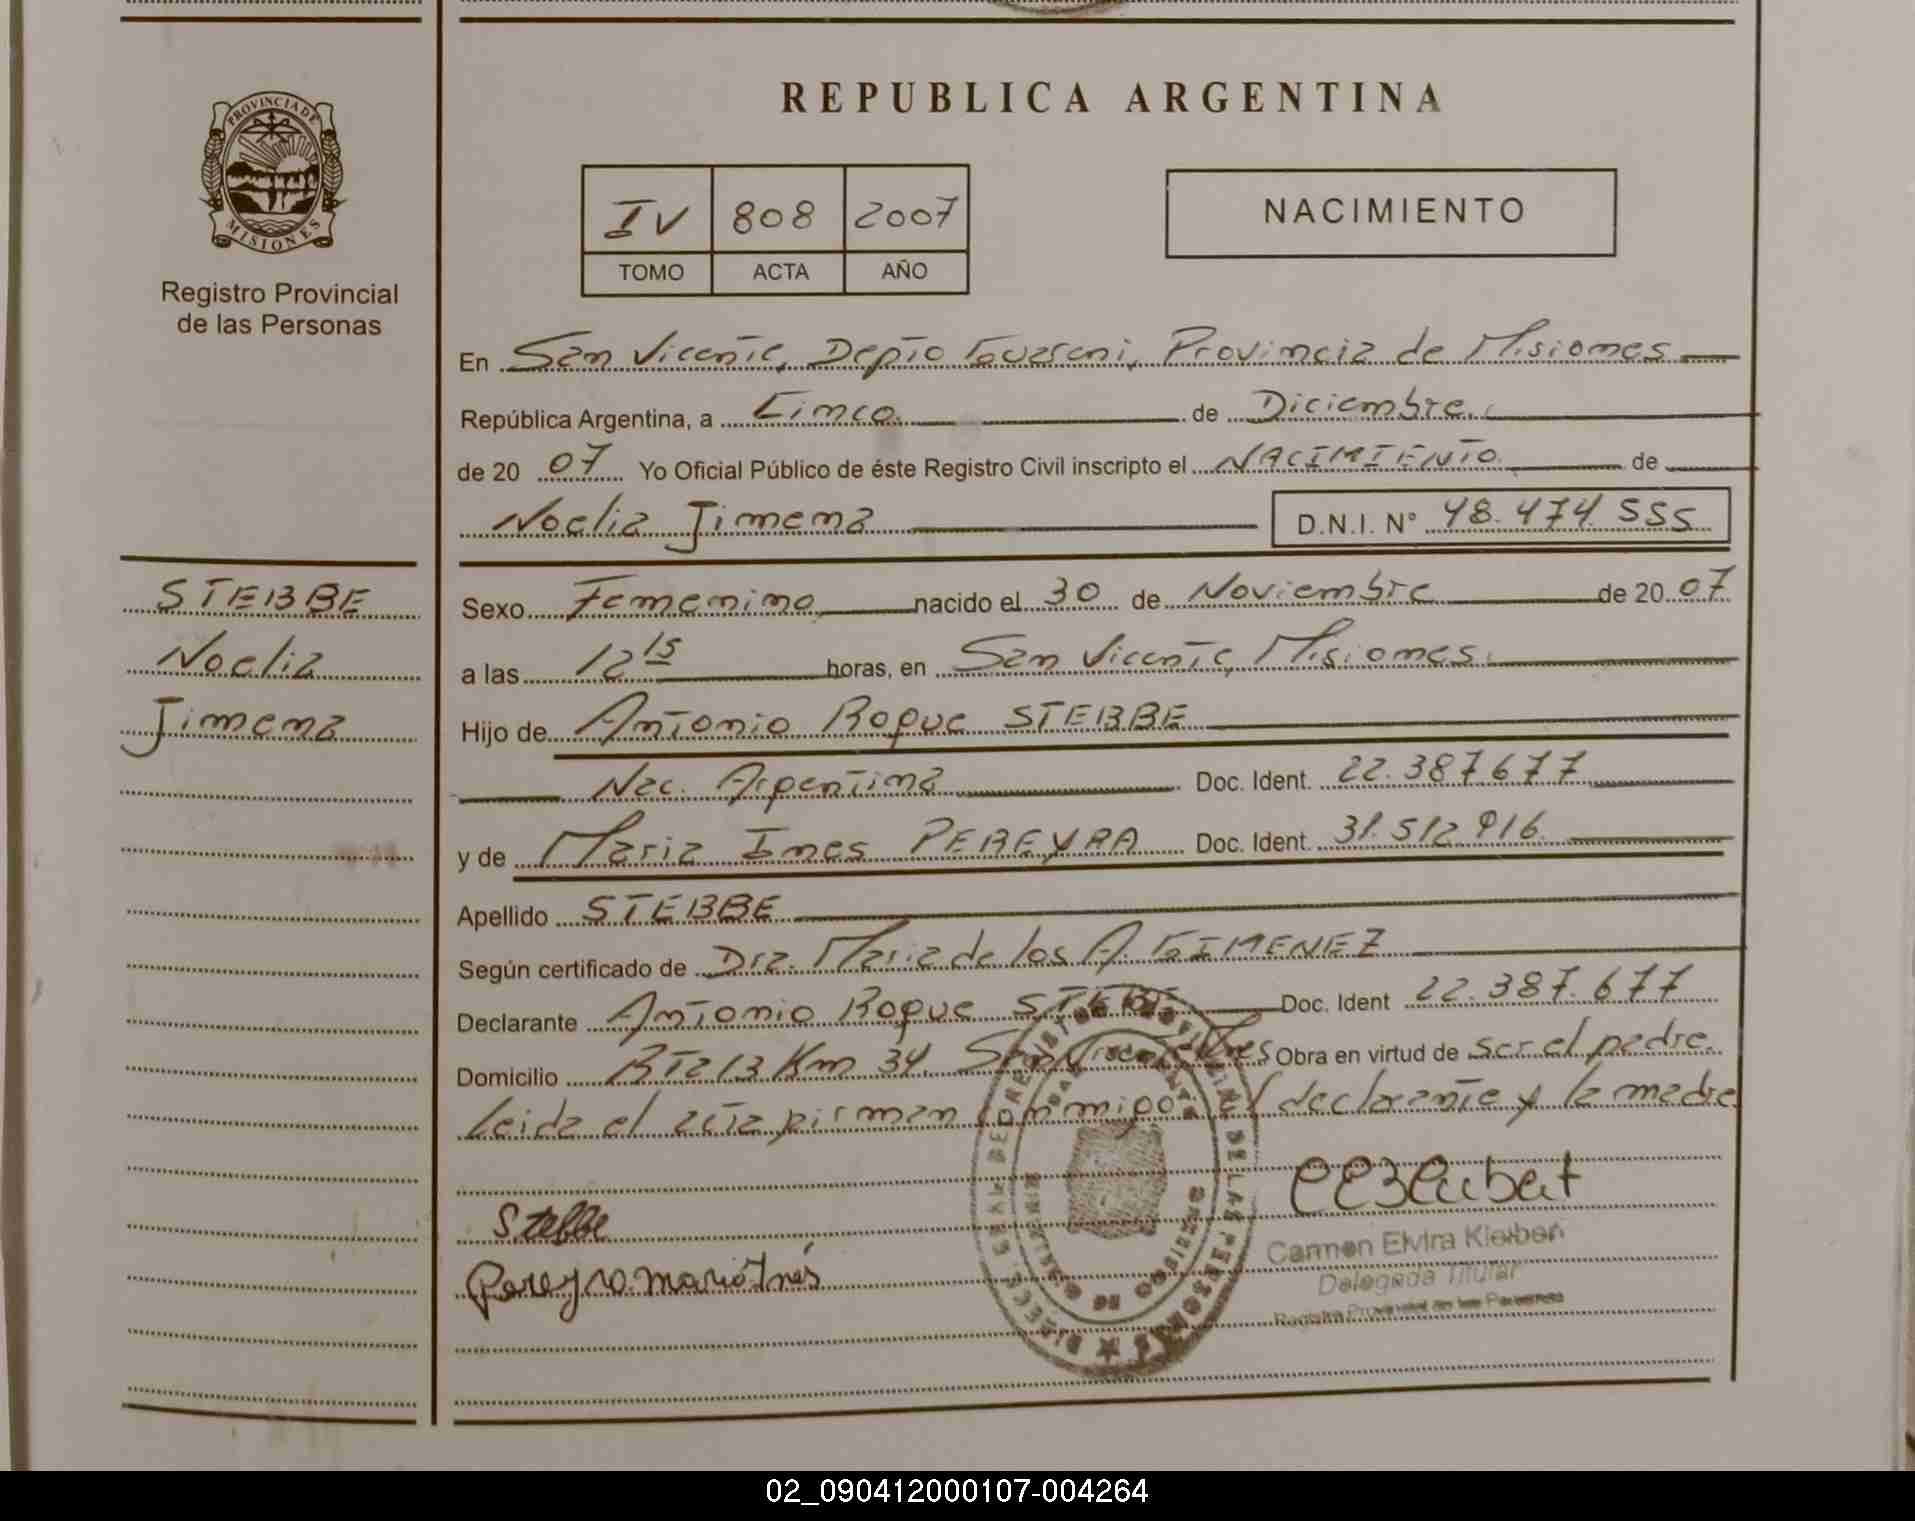 PROVINCIA DE
MISIONES
Registro Provincial
de las Personas
REPUBLICA ARGENTINA
IV 808 2007
TOMO ACTA AÑO
NACIMIENTO
En San Vicente, Depto Guaraní, Provincia de Misiones
República Argentina, a Cinco de Diciembre
de 20 07 Yo Oficial Público de éste Registro Civil inscripto el NACIMIENTO de
Noelia Jimena D.N.I. N° 48.474.555
STEBBE
Noelia
Jimena
Sexo Femenino nacido el 30 de Noviembre de 20 07
a las 12 15 horas, en San Vicente, Misiones
Hijo de Antonio Roque STEBBE
Nac. Argentina Doc. Ident. 22.387677
y de Maria Ines PEREYRA Doc. Ident. 31.512.916
Apellido STEBBE
Según certificado de Dra. Maria de los A. GIMENEZ
Declarante Antonio Roque STEBBE Doc. Ident 22.387.677
Domicilio RTA 13 Km 34. San Vicente Obra en virtud de ser el padre
Leida el acta firman conmigo el declarante y la madre
Stebbe
Pereyra Maria Inés
Carmen Elvira Kleiben
Delegada Titular
Registro Provincial de las Personas
02_090412000107-004264